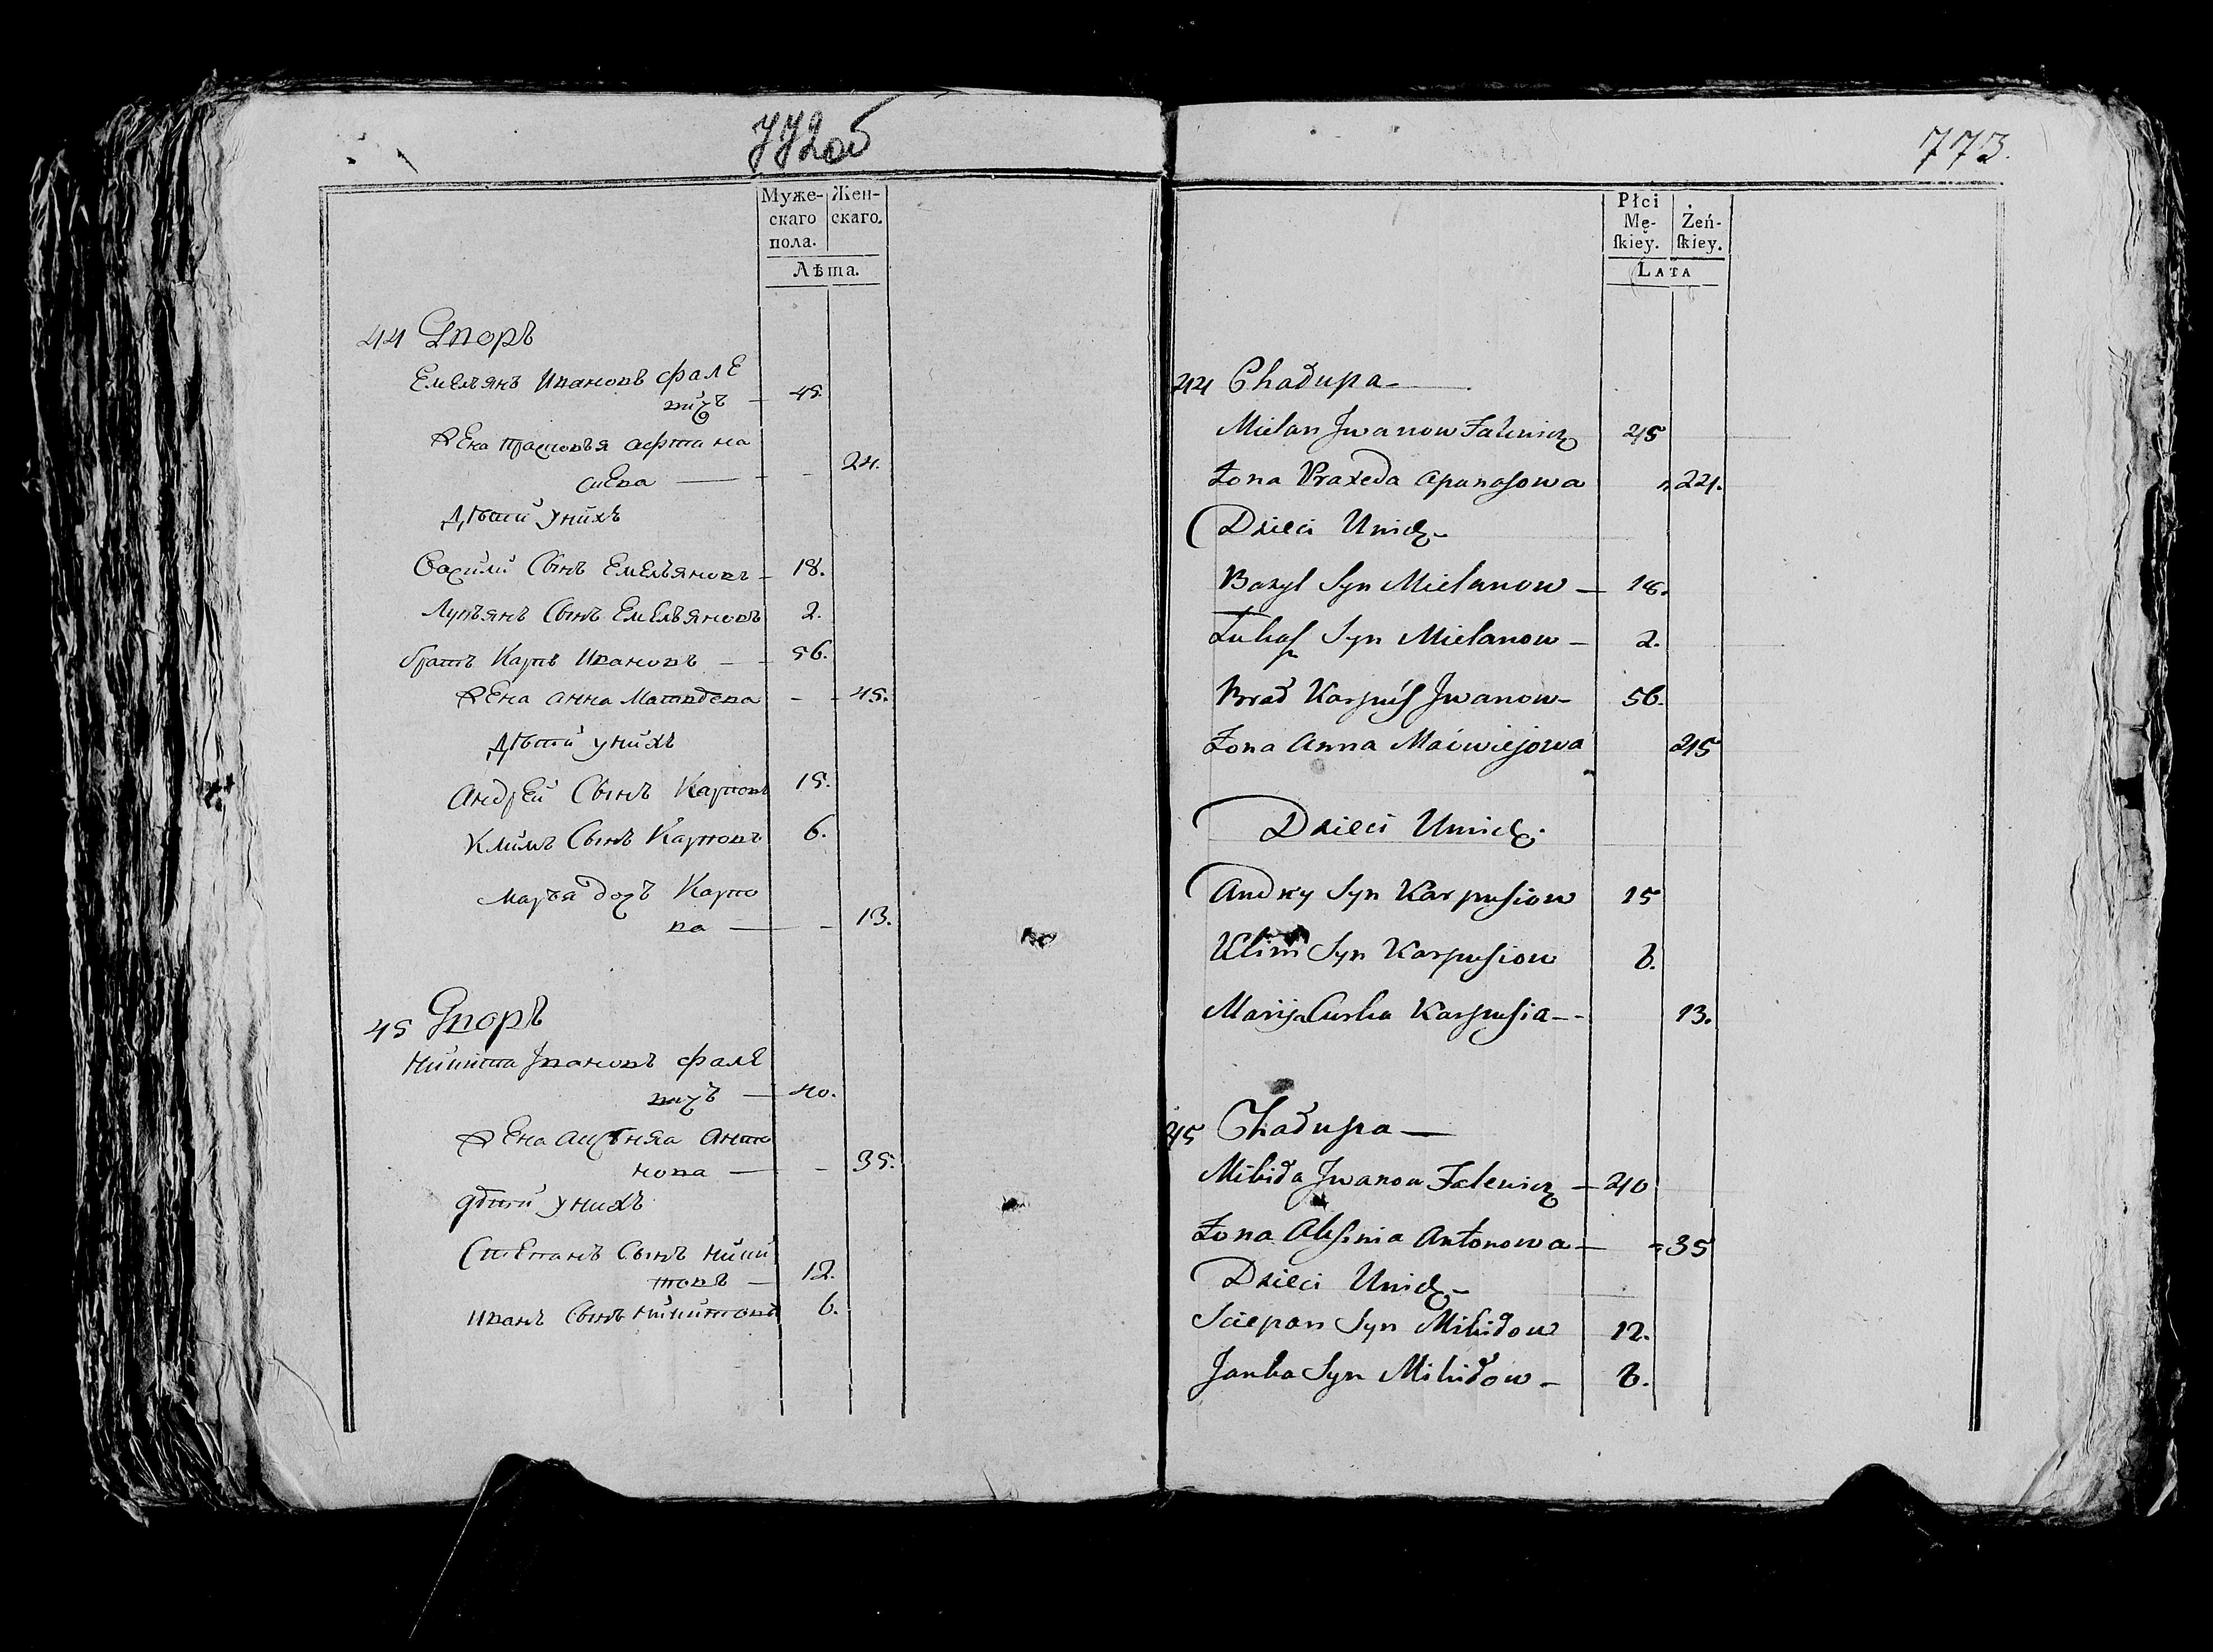 772об
Муже-
скаго
пола.
Жен-
скаго.
Лѣта.
44 Дворъ
Емельянъ Ивановъ фале
вичъ — 45.
Жена Прасковья афана
сиева — 24.
Дѣти у нихъ
Василий Сынъ Емельяновъ — 18.
Лукьянъ Сынъ Емельяновъ 2.
братъ Карпъ Ивановъ — 56.
Жена анна Матвѣева - 45.
Дѣти у нихъ
Андрей Сынъ Карповъ 15.
Климъ Сынъ Карповъ 6.
Марья дочь Карпо
ва — 13.
45 Дворъ
Никита Ивановъ фале
вичъ — 40.
Жена Анто
нова — 35.
дѣти у нихъ
Степанъ Сынъ Ники
товъ — 12.
Иванъ Сынъ Никитовъ 6.
773.
Płci
Mę-
ſkiey.
Żeń-
ſkiey.
LATA
44 Chadupa —
Mielan Jwanow Falewicz 45
Żona Praxeda Apanasowa 24.
Dzieci Unich –
Bazyl Syn Mielanow — 18.
Łukaſz Syn Mielanow — 2.
Brad Karpuś Jwanow – 56.
Żona Anna Maćwiejowa 45
Dzieci Unich.
Andrey Syn Karpusiow 15
Klim Syn Karpusiow 6.
Marija Curka Karpusia – - 13.
45 Chadupa —
Mikida Jwanow Falewicz — 40
Żona Aksinia Antonowa — 35
Dzieci Unich –
Sciepan Syn Mikidow 12.
Janka Syn Mikidow – 6.